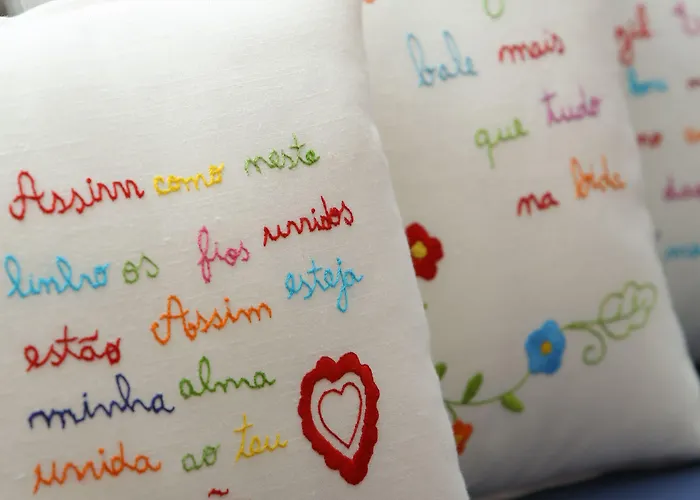 Assim como neste
linho os fios unidos
estão Assim esteja
minha alma
unida ao teu
bale mais
que tudo
na bida